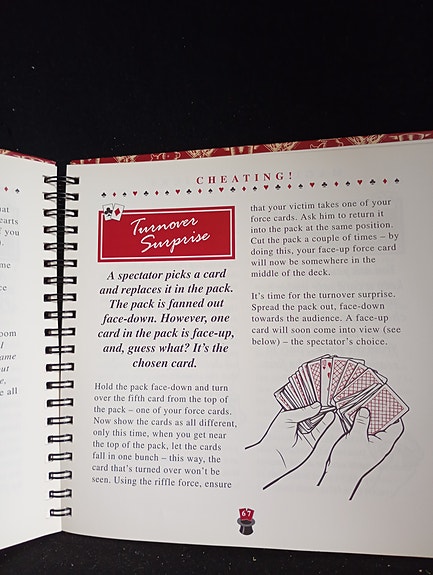 at
earts
f you
).
me
ce
oom
I
ame
out
e,
e all
CHEATING!
Turnover
Surprise
A spectator picks a card
and replaces it in the pack.
The pack is fanned out
face-down. However, one
card in the pack is face-up,
and, guess what? It's the
chosen card.
Hold the pack face-down and turn
over the fifth card from the top of
the pack – one of your force cards.
Now show the cards as all different,
only this time, when you get near
the top of the pack, let the cards
fall in one bunch – this way, the
card that's turned over won't be
seen. Using the riffle force, ensure
that your victim takes one of your
force cards. Ask him to return it
into the pack at the same position.
Cut the pack a couple of times – by
doing this, your face-up force card
will now be somewhere in the
middle of the deck.
It's time for the turnover surprise.
Spread the pack out, face-down
towards the audience. A face-up
card will soon come into view (see
below) – the spectator's choice.
67